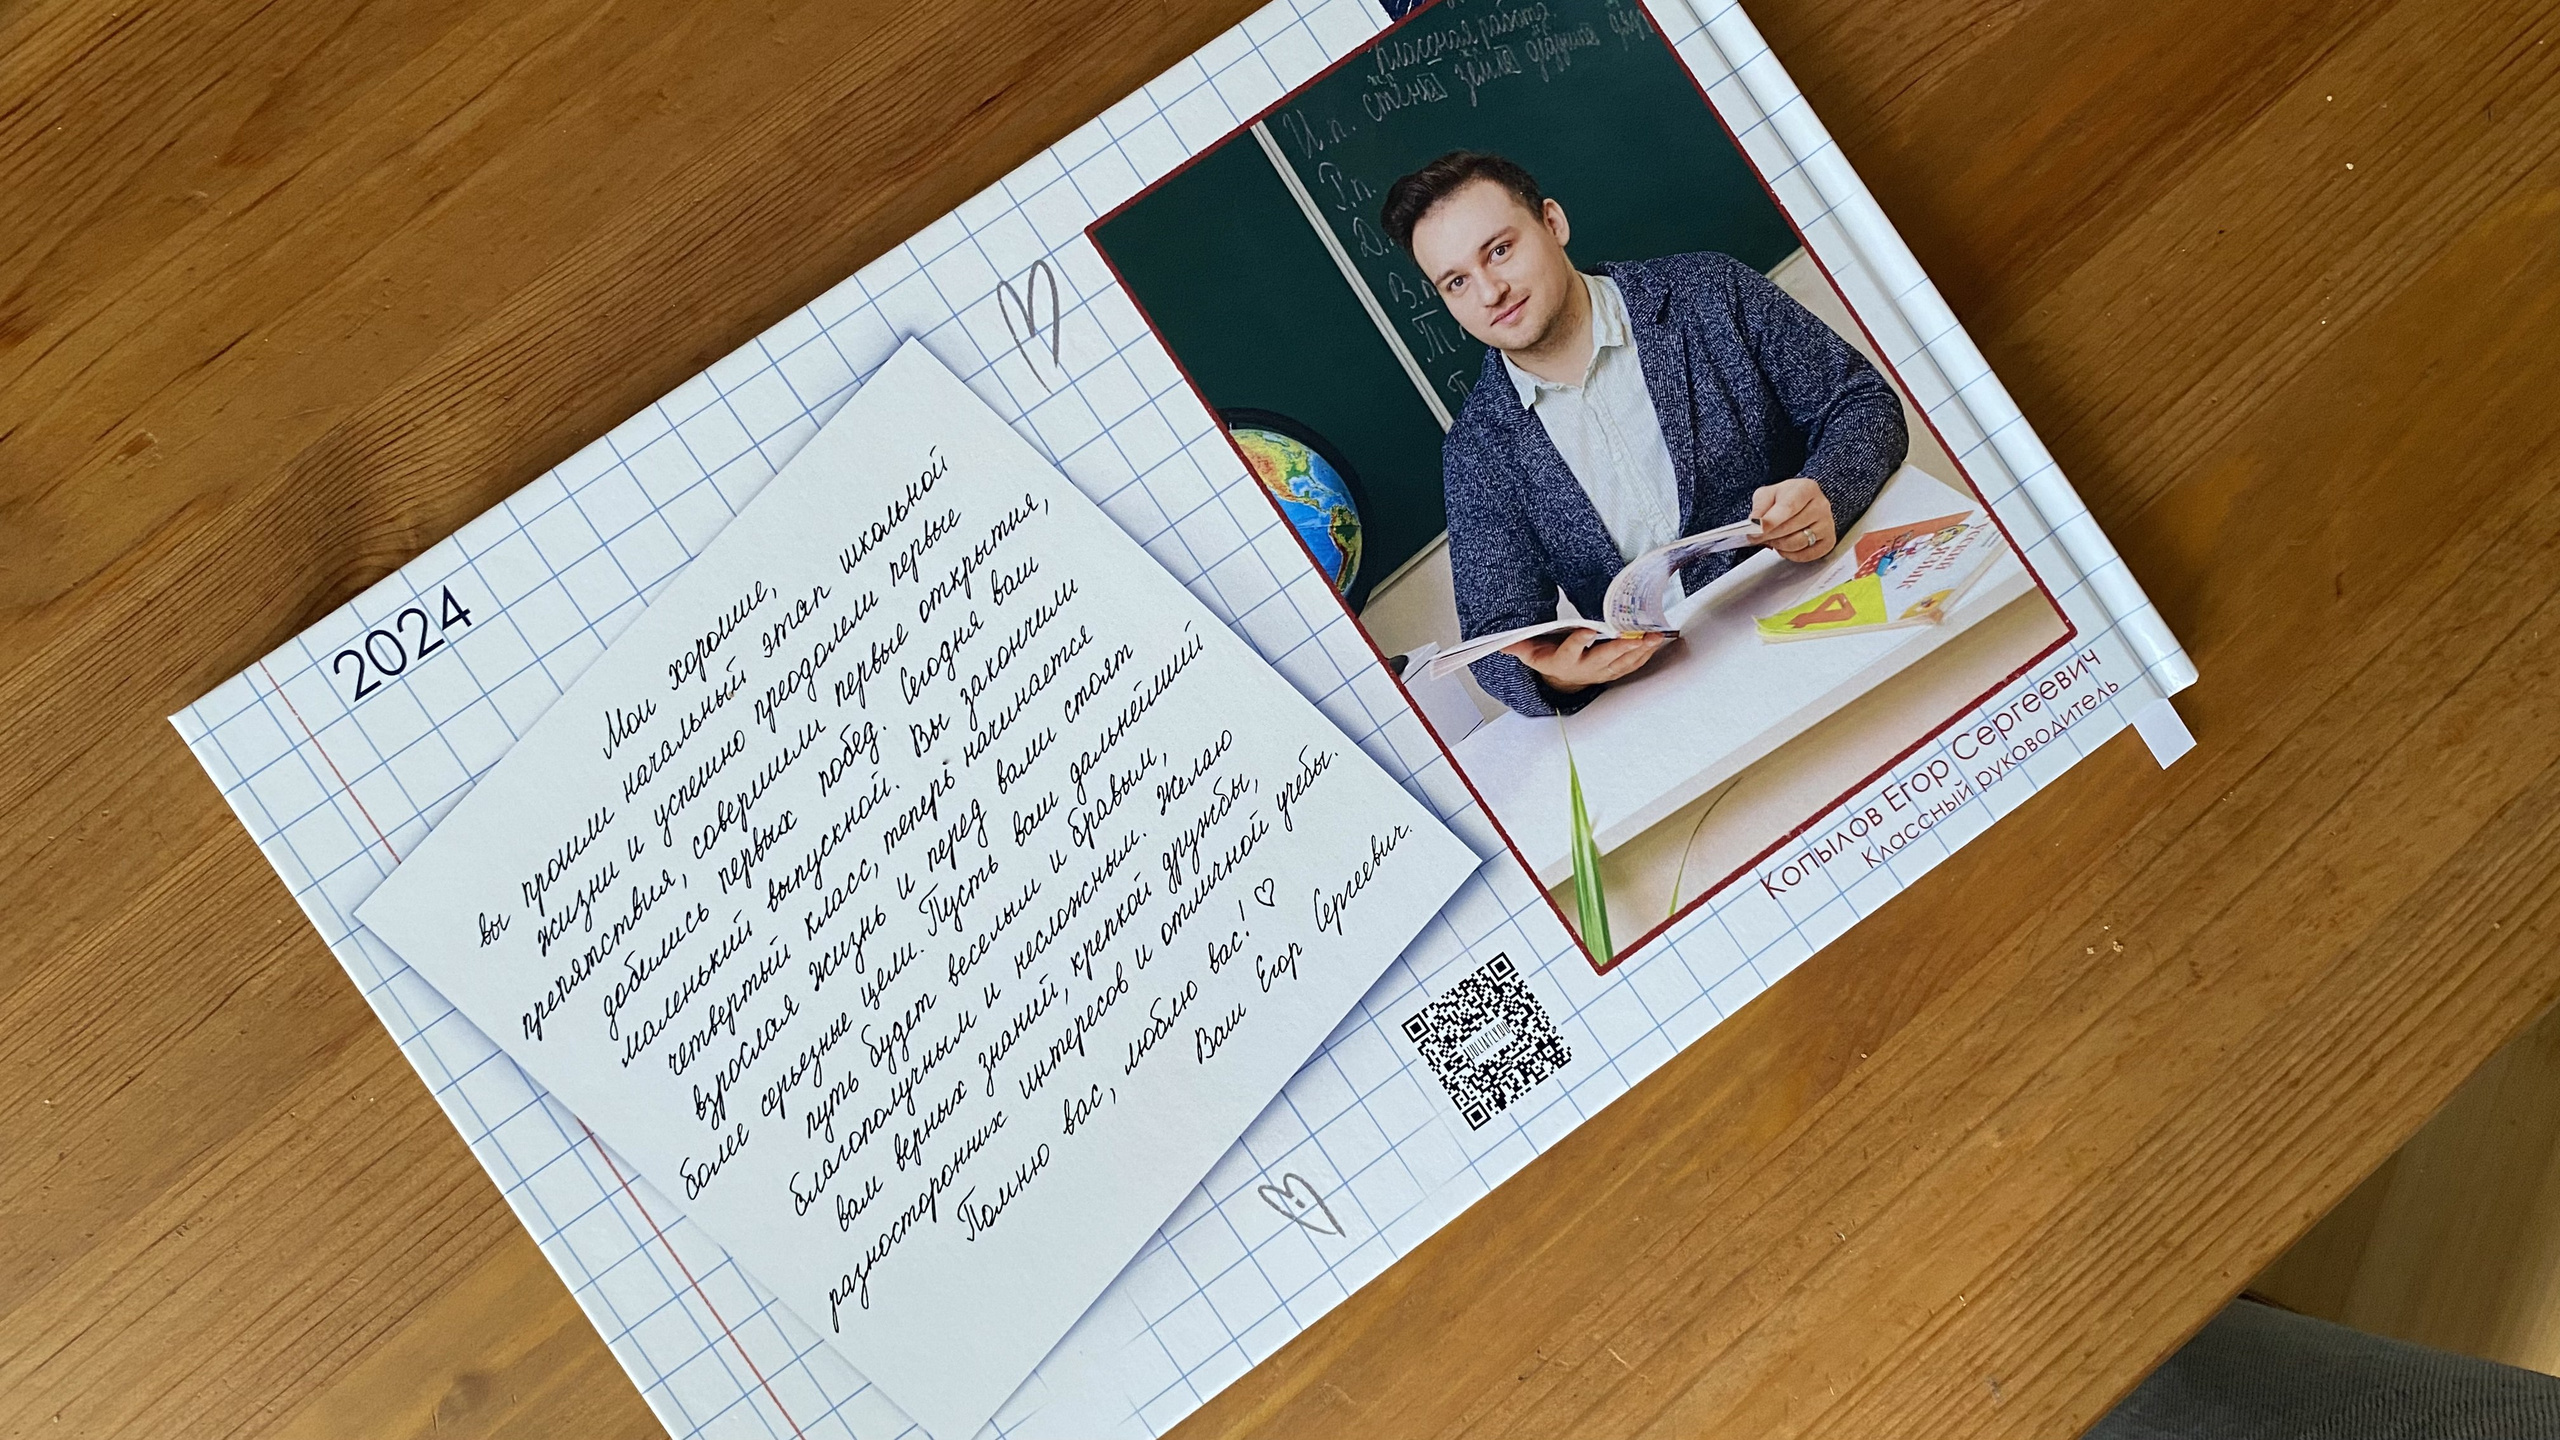 2024
Мои хорошие,
вы прошли начальный этап школьной
жизни и успешно преодолели первые
препятствия, совершили первые открытия,
добились первых побед. Сегодня ваш
маленький выпускной. Вы закончили
четвертый класс, теперь начинается
взрослая жизнь и перед вами стоят
более серьезные цели. Пусть ваш дальнейший
путь будет веселым и бравым,
благополучным и несложным. Желаю
вам верных знаний, крепкой дружбы,
разносторонних интересов и отличной учебы.
Помню вас, люблю вас!
Ваш Егор Сергеевич.
Классная работа.
И.п. стены земля
Р.п.
Д.
В.п
Т
П
Копылов Егор Сергеевич
Классный руководитель